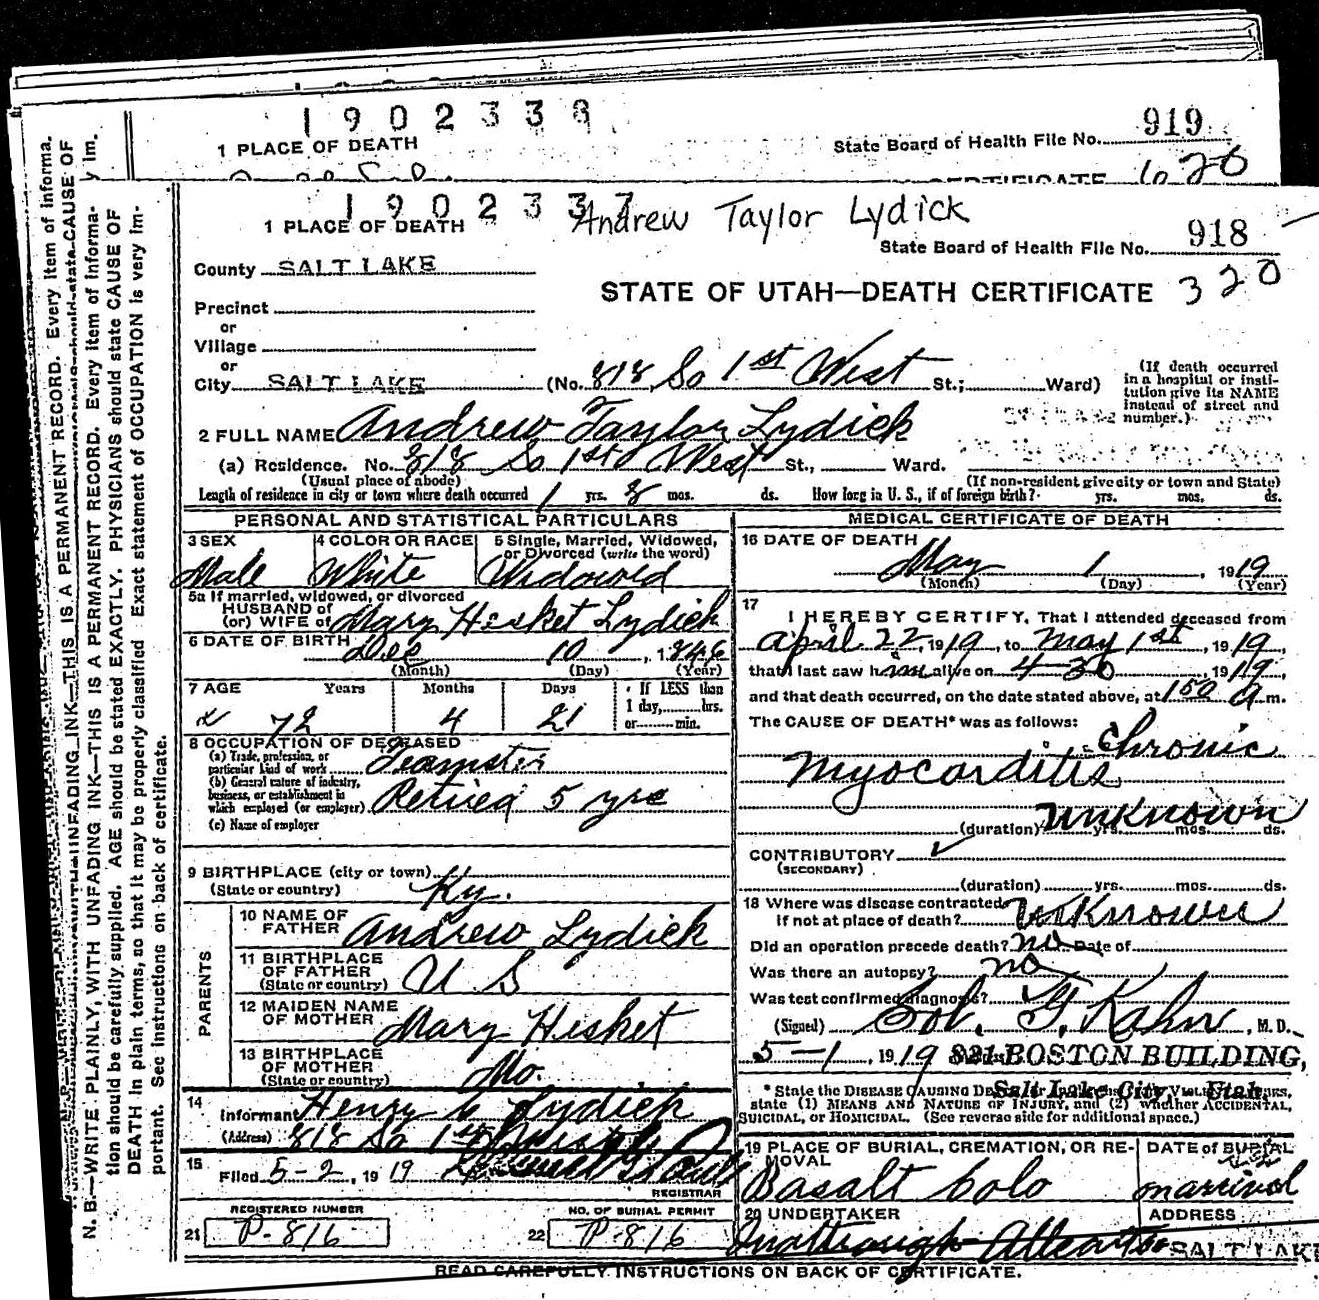 1902338
1 PLACE OF DEATH
State Board of Health File No. 919
CERTIFICATE 620
1902337
Andrew Taylor Lydick
1 PLACE OF DEATH
State Board of Health File No. 918
County SALT LAKE
STATE OF UTAH—DEATH CERTIFICATE 320
Precinct
or
Village
or
City SALT LAKE (No. 818 So 1st West St.; Ward)
(If death occurred in a hospital or insti-
tution give its NAME
instead of street and
number.)
2 FULL NAME Andrew Taylor Lydick
(a) Residence. No. 818 So 1st West St., Ward.
(Usual place of abode) (If non-resident give city or town and State)
Length of residence in city or town where death occurred 1 yrs. 8 mos. ds. How long in U. S., if of foreign birth? yrs. mos. ds.
PERSONAL AND STATISTICAL PARTICULARS
3 SEX Male
4 COLOR OR RACE White
5 Single, Married, Widowed,
or Divorced (write the word)
Widowed
5a If married, widowed, or divorced
HUSBAND of
(or) WIFE of Mary Hesket Lydick
6 DATE OF BIRTH Dec 10, 1846
(Month) (Day) (Year)
7 AGE Years Months Days
72 4 21
If LESS than
1 day, hrs.
or min.
8 OCCUPATION OF DECEASED
(a) Trade, profession, or
particular kind of work Teamster
(b) General nature of industry,
business, or establishment in
which employed (or employer) Retired 5 yrs
(c) Name of employer
9 BIRTHPLACE (city or town)
(State or country) Ky.
PARENTS
10 NAME OF
FATHER Andrew Lydick
11 BIRTHPLACE
OF FATHER
(State or country) U S
12 MAIDEN NAME
OF MOTHER Mary Hesket
13 BIRTHPLACE
OF MOTHER
(State or country) Mo.
14
Informant Henry C Lydick
(Address) 818 So 1st West
15
Filed 5-2, 1919
REGISTRAR
REGISTERED NUMBER
21 P-816
NO. OF BURIAL PERMIT
22 P-816
MEDICAL CERTIFICATE OF DEATH
16 DATE OF DEATH
May 1, 1919
(Month) (Day) (Year)
17
I HEREBY CERTIFY, That I attended deceased from
April 22, 1919, to May 1st, 1919,
that I last saw him alive on 4-30, 1919,
and that death occurred, on the date stated above, at 1 50 a m.
The CAUSE OF DEATH* was as follows:
Chronic
Myocarditis
(duration) Unknown yrs. mos. ds.
CONTRIBUTORY
(SECONDARY)
(duration) yrs. mos. ds.
18 Where was disease contracted
if not at place of death? Unknown
Did an operation precede death? no Date of
Was there an autopsy? no
Was test confirmed diagnosis?
(Signed) Sol. G. Kahn, M. D.
5-1, 1919 821 BOSTON BUILDING,
Salt Lake City, Utah
* State the DISEASE CAUSING
state (1) MEANS AND NATURE OF INJURY, and (2) whether ACCIDENTAL,
SUICIDAL, or HOMICIDAL. (See reverse side for additional space.)
19 PLACE OF BURIAL, CREMATION, OR RE-
MOVAL
Basalt Colo
DATE of BURIAL
on arrival
20 UNDERTAKER
ADDRESS
SALT LAKE
READ CAREFULLY INSTRUCTIONS ON BACK OF CERTIFICATE.
N. B.—WRITE PLAINLY, WITH UNFADING INK—THIS IS A PERMANENT RECORD. Every item of informa-
tion should be carefully supplied. AGE should be stated EXACTLY. PHYSICIANS should state CAUSE OF
DEATH in plain terms, so that it may be properly classified Exact statement of OCCUPATION is very im-
portant. See instructions on back of certificate.